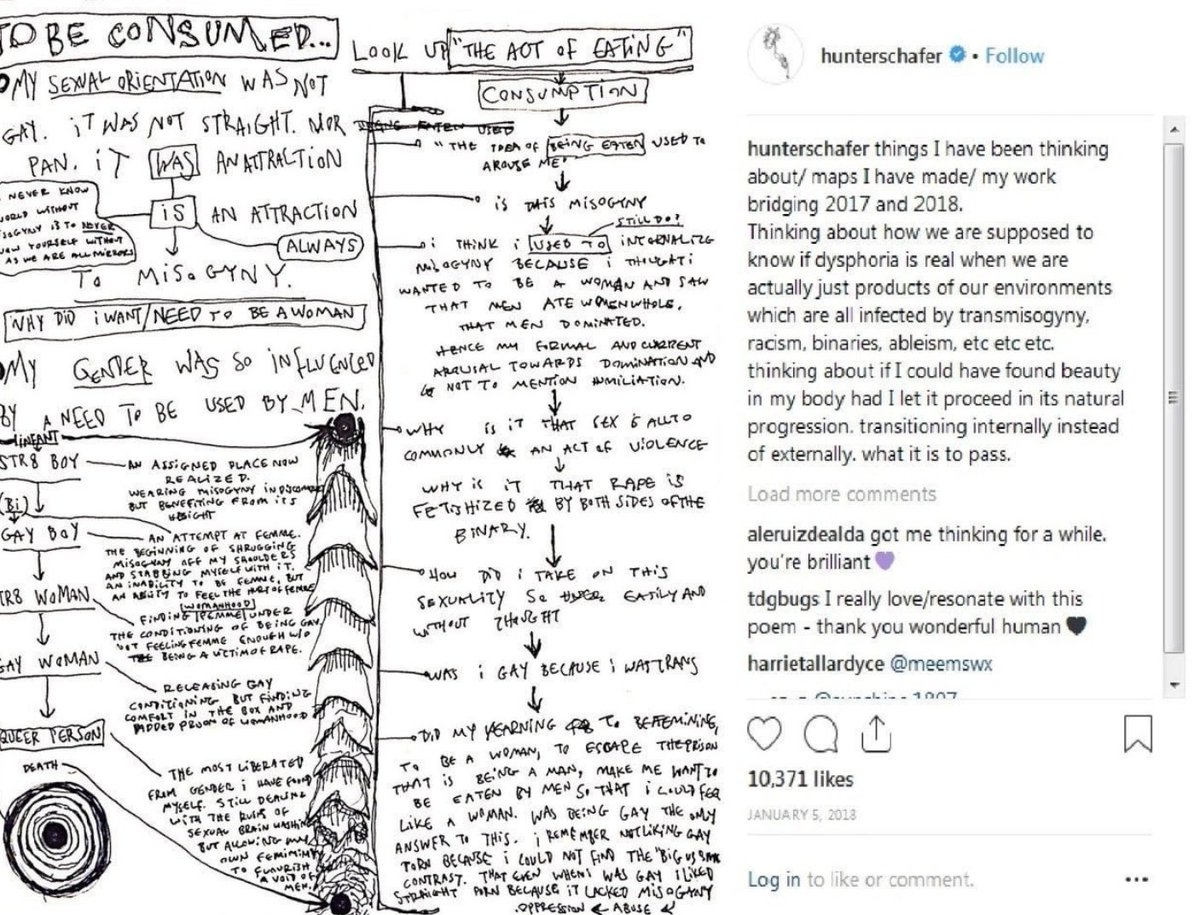 TO BE CONSUMED...
MY SEXUAL ORIENTATION WAS NOT
GAY. IT WAS NOT STRAIGHT. NOR
PAN. IT WAS AN ATTRACTION
NEVER KNOW
WORLD WITHOUT
MISOGYNY IS TO NEVER
KNOW YOURSELF WITHOUT
AS WE ARE ALL MIRRORS
IS AN ATTRACTION
ALWAYS
TO MISOGYNY.
WHY DID I WANT/NEED TO BE A WOMAN
MY GENDER WAS SO INFLUENCED
BY A NEED TO BE USED BY MEN.
INFANT
STR8 BOY
AN ASSIGNED PLACE NOW
REALIZED.
WEARING MISOGYNY IN DISCOMFORT
BUT BENEFITING FROM ITS
WEIGHT
(Bi)
GAY BOY
AN ATTEMPT AT FEMME.
THE BEGINNING OF SHRUGGING
MISOGYNY OFF MY SHOULDERS
AND STABBING MYSELF WITH IT.
AN INABILITY TO BE FEMME, BUT
AN ABILITY TO FEEL THE HURT OF FEMME
STR8 WOMAN
WOMANHOOD
FINDING FEMME UNDER
THE CONDITIONING OF BEING GAY
NOT FEELING FEMME ENOUGH W/O
BEING A VICTIM OF RAPE.
GAY WOMAN
RELEASING GAY
CONDITIONING BUT FINDING
COMFORT IN THE BOX AND
PADDED PRISON OF WOMANHOOD
QUEER PERSON
THE MOST LIBERATED
FROM GENDER I HAVE FOUND
MYSELF. STILL DEALING
WITH THE RUINS OF
SEXUAL BRAIN WASHING
BUT ALLOWING MY
OWN FEMININITY
TO FLOURISH
A VOID OF
MEN.
DEATH
LOOK UP "THE ACT OF EATING"
CONSUMPTION
BEING EATEN USED
"THE IDEA OF BEING EATEN USED TO
AROUSE ME"
IS THIS MISOGYNY
STILL DO?
I THINK I USED TO INTERNALIZE
MISOGYNY BECAUSE I THOUGHT I
WANTED TO BE A WOMAN AND SAW
THAT MEN ATE WOMEN WHOLE.
THAT MEN DOMINATED.
HENCE MY FORMAL AND CURRENT
AROUSAL TOWARDS DOMINATION AND
NOT TO MENTION HUMILIATION.
WHY IS IT THAT SEX IS ALL TO
COMMONLY AN ACT OF VIOLENCE
WHY IS IT THAT RAPE IS
FETISHIZED BY BOTH SIDES OF THE
BINARY.
HOW DID I TAKE ON THIS
SEXUALITY SO EATILY AND
WITHOUT THOUGHT
WAS I GAY BECAUSE I WAS TRANS
DID MY YEARNING TO BE FEMININE,
TO BE A WOMAN, TO ESCAPE THE PRISON
THAT IS BEING A MAN, MAKE ME WANT TO
BE EATEN BY MEN SO THAT I COULD FEEL
LIKE A WOMAN. WAS BEING GAY THE ONLY
ANSWER TO THIS. I REMEMBER NOT LIKING GAY
PORN BECAUSE I COULD NOT FIND THE "BIG VS SMALL
CONTRAST. THAT EVEN WHEN I WAS GAY I LIKED
STRAIGHT PORN BECAUSE IT LACKED MISOGYNY
OPPRESSION ABUSE
hunterschafer • Follow
hunterschafer things I have been thinking
about/ maps I have made/ my work
bridging 2017 and 2018.
Thinking about how we are supposed to
know if dysphoria is real when we are
actually just products of our environments
which are all infected by transmisogyny,
racism, binaries, ableism, etc etc etc.
thinking about if I could have found beauty
in my body had I let it proceed in its natural
progression. transitioning internally instead
of externally. what it is to pass.
Load more comments
aleruizdealda got me thinking for a while.
you're brilliant 💜
tdgbugs I really love/resonate with this
poem - thank you wonderful human 🖤
harrietallardyce @meemswx
10,371 likes
JANUARY 5, 2018
Log in to like or comment.